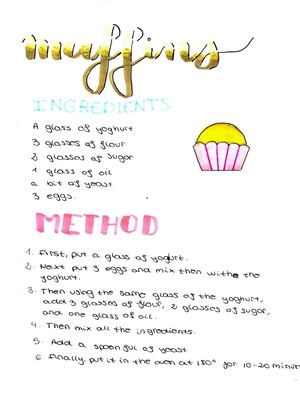 muffins
INGREDIENTS
A glass of yoghurt
3 glasses of flour
2 glasses of sugar
1 glass of oil
a bit of yeast
3 eggs.
METHOD
1. First, put a glass of yogurt.
2. Next put 3 eggs and mix then with the
yoghurt.
3. Then using the same glass of the yoghurt,
add 3 glasses of flour, 2 glasses of sugar,
and one glass of oil.
4. Then mix all the ingredients.
5. Add a spoonful of yeast
6. Finally put it in the oven at 180° for 10-20 minut